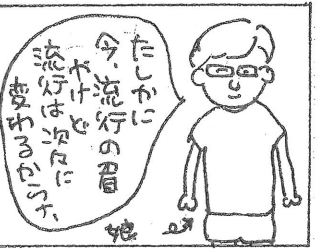 たしかに
今、流行の眉
やけど
流行は次々に
変わるからナ、
娘